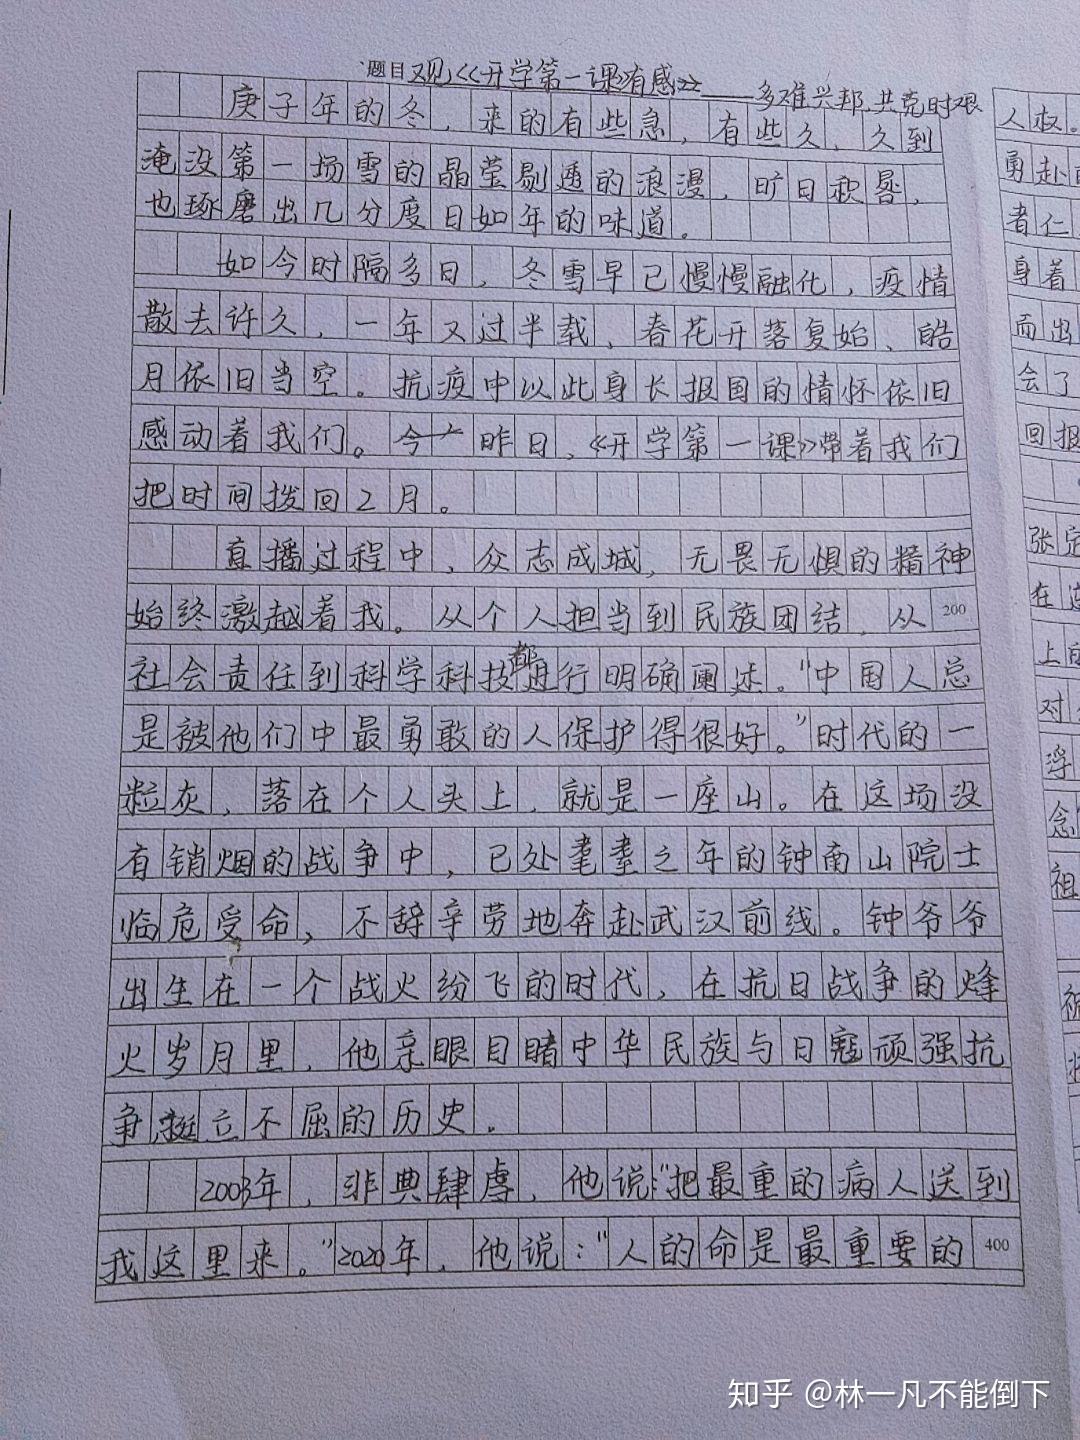 题目 观《<开学第一课>有感》——多难兴邦,共克时艰
庚子年的冬，来的有些急，有些久，久到
淹没第一场雪的晶莹剔透的浪漫，旷日积晷，
也琢磨出几分度日如年的味道。
如今时隔多日，冬雪早已慢慢融化，疫情
散去许久，一年又过半载，春花开落复始、皓
月依旧当空。抗疫中以此身长报国的情怀依旧
感动着我们。昨日，《开学第一课》带着我们
把时间拨回2月。
直播过程中，众志成城，无畏无惧的精神
始终激越着我。从个人担当到民族团结，从 200
社会责任到科学科技都进行明确阐述。“中国人总
是被他们中最勇敢的人保护得很好。”时代的一
粒灰，落在个人头上，就是一座山。在这场没
有销烟的战争中，已处耄耋之年的钟南山院士
临危受命，不辞辛劳地奔赴武汉前线。钟爷爷
出生在一个战火纷飞的时代，在抗日战争的烽
火岁月里，他亲眼目睹中华民族与日寇顽强抗
争,挺立不屈的历史。
2003年，非典肆虐，他说:“把最重的病人送到
我这里来。”2020年，他说：“人的命是最重要的 400
人权。
勇赴
者仁
身着
而出
会了
回报
张定
在这
上的
对
浮
念
祖
知乎 @林一凡不能倒下